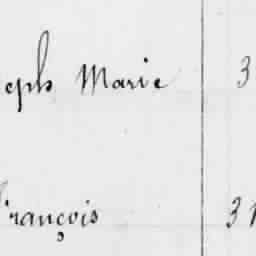 eph Marie 3
François 31